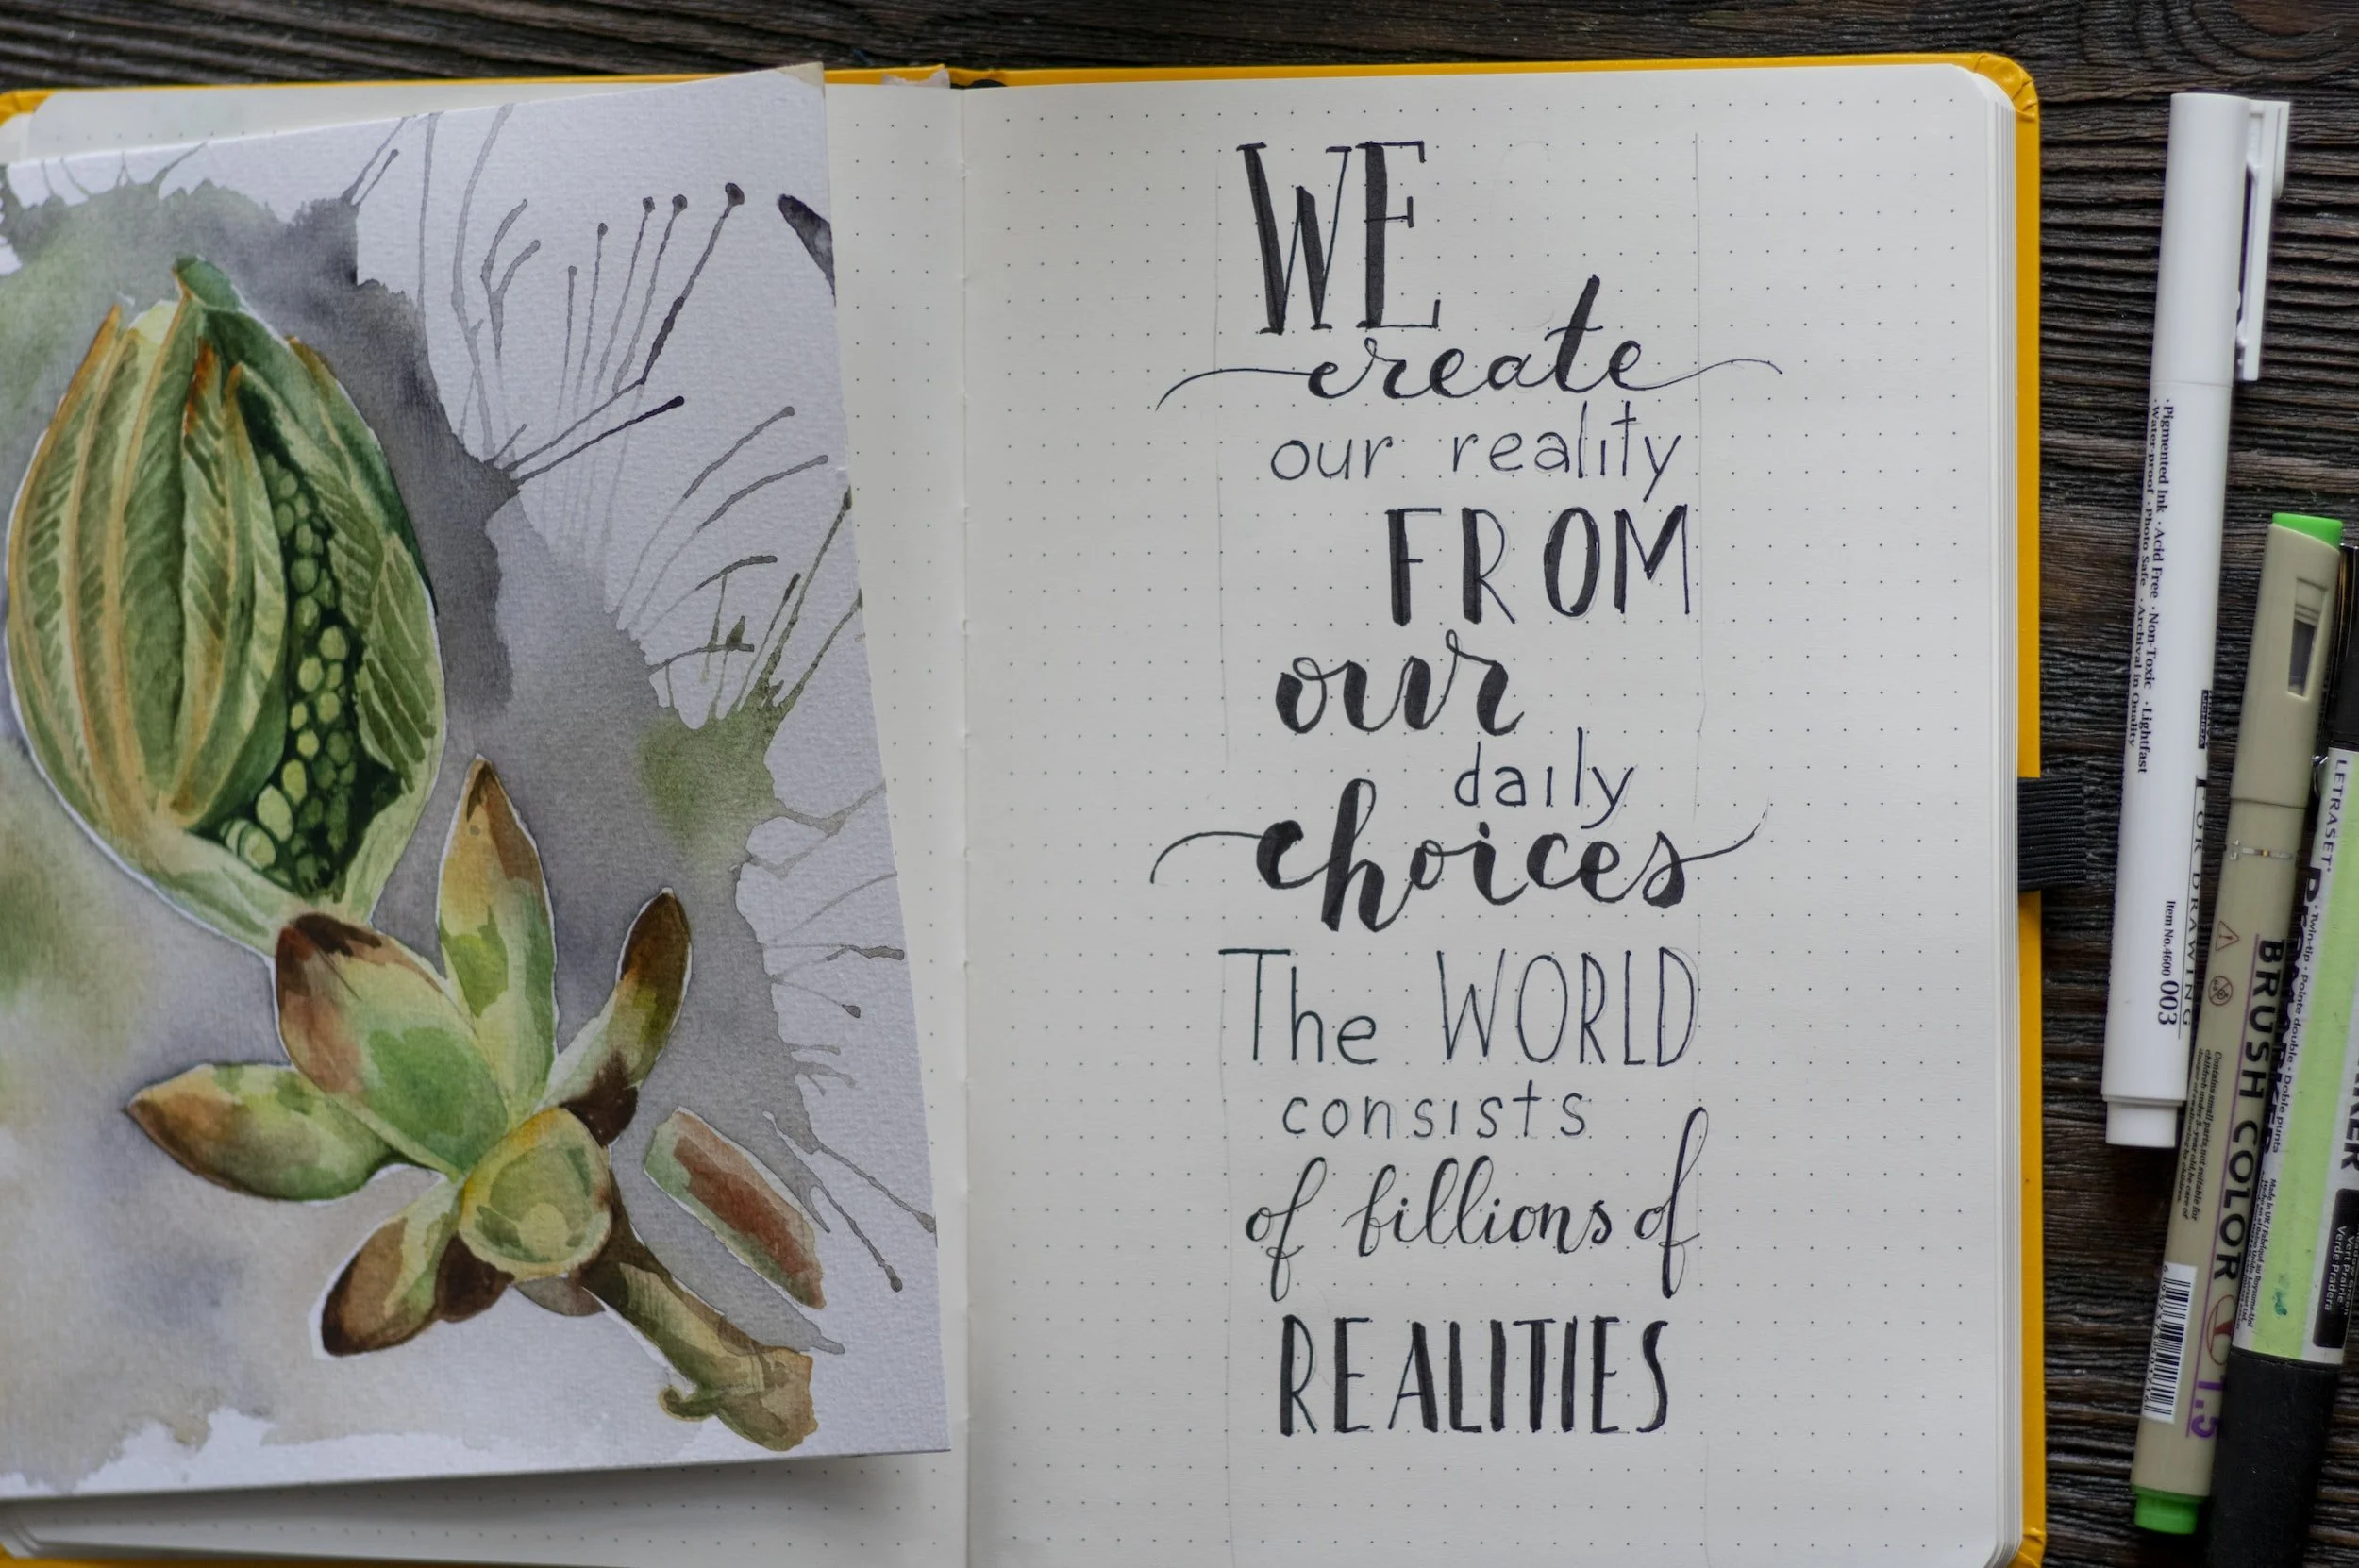 WE
create
our reality
FROM
our
daily
choices
The WORLD
consists
of billions of
REALITIES
·Pigmented Ink ·Acid Free ·Non-Toxic ·Lightfast
·Water-proof ·Photo Safe ·Archival in Quality
FOR DRAWING
Item No.4600 003
BRUSH COLOR
1.5
LETRASET
Twin-tip · Pointe double · Doble punta
Vert prairie
Verde Pradera